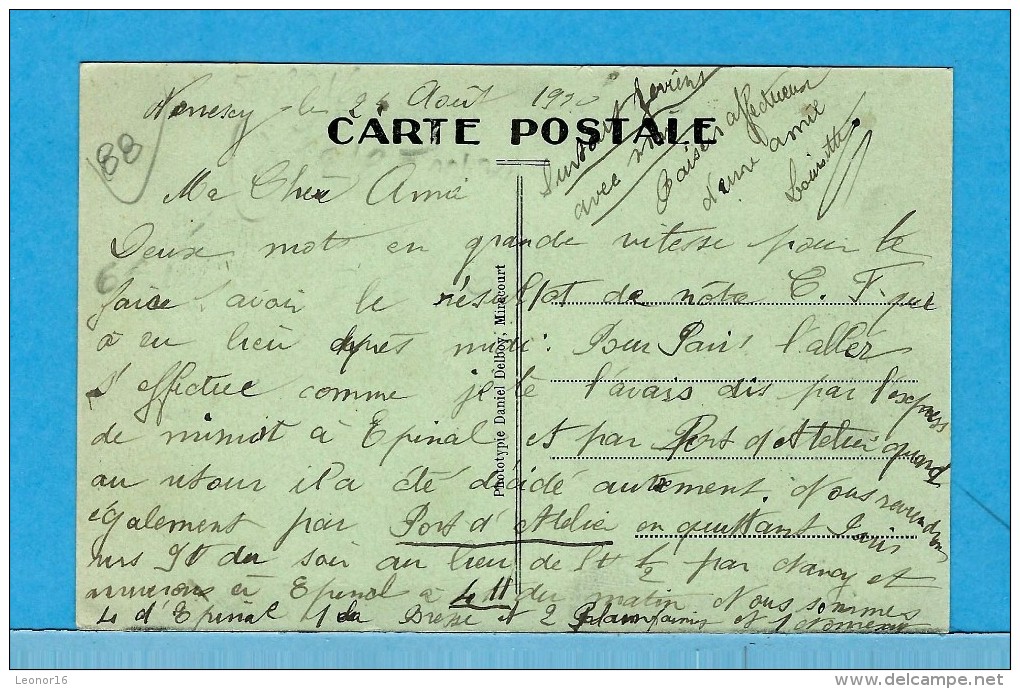 le 24 Août 19
88
CARTE POSTALE
Surtout
avec moi
Baisers affectueux
d'une amie
Ma Chère Amie
Deux mots en grande vitesse pour te
faire savoir le résultat de nôtre C. F. qui
a eu lieu après midi. Pour Paris l'aller
s'effectue comme je te l'avais dis par l'express
de minuit à Epinal et par Port d'Atelier quand
au retour il a été décidé autrement. Nous reviendrons
également par Port d'Atelier en quittant Paris
vers 9h du soir au lieu de 5h 1/2 par Nancy et
arriverons à Epinal à 4 11 du matin Nous sommes
4 d'Epinal 1 la Bresse et 2 et 1
Phototypie Daniel Delboy, Mirecourt
Leonor16